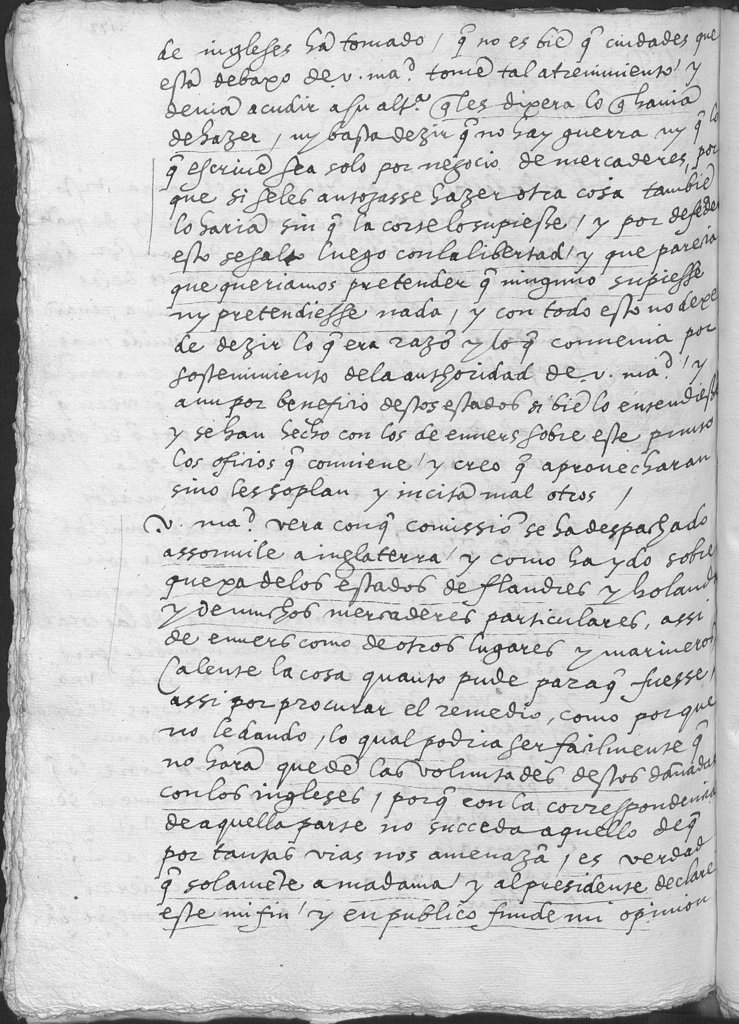 de ingleses hã tomado / q̃ no es biẽ q̃ ciudades que
estã debaxo de v. ma.d tomẽ tal atreuimiento / y
deuiã acudir a su alt.a q̃ les dixera lo q̃ hauiã
de hazer / ny basta dezir q̃ no hay guerra ny q̃ lo
q̃ escriuẽ sea solo por negocio de mercaderes, por
que si seles antojasse hazer otra cosa tambiẽ
lo hariã sin q̃ la corte lo supiesse / y por defẽder
esto se salto luego con la libertad / y que parecia
que queriamos pretender q̃ ninguno supiesse
ny pretendiesse nada / y con todo esto no dexe
de dezir lo q̃ era razõ y lo q̃ conuenia por
sostenimiento de la authoridad de v. ma.d / y
aun por beneficio destos estados si biẽ lo entendiesse
y se han hecho con los de enuers sobre este punto
los oficios q̃ conuiene / y creo q̃ aprouecharan
sino les soplan y incitã mal otros /
v. ma.d vera con q̃ comissiõ se ha despachado
assonuile a inglaterra / y como ha ydo sobre
quexa de los estados de flandres y holanda
y de muchos mercaderes particulares, assi
de enuers como de otros lugares y marineros
Calente la cosa quanto pude para q̃ fuesse /
assi por procurar el remedio, como por que
no le dando / lo qual podria ser facilmente q̃
no harã quedẽ las voluntades destos dañadas
con los ingleses / porq̃ con la correspondencia
de aquella parte no succeda aquello de q̃
por tantas vias nos amenazã / es verdad
q̃ solamẽte a madama / y al presidente declare
este mi fin / y en publico funde mi opinion